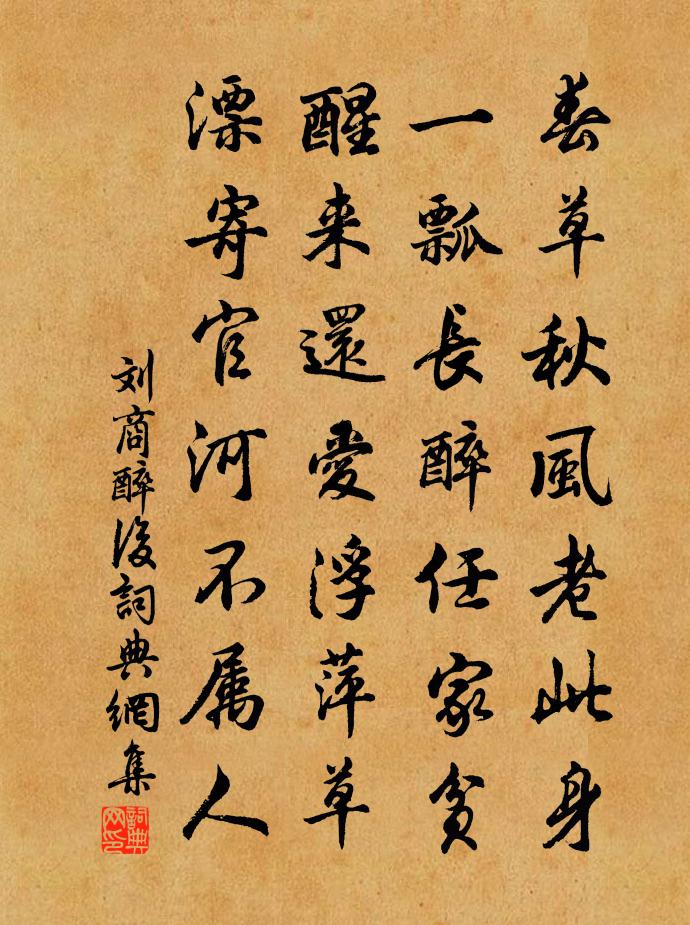 春草秋風老此身
一瓢長醉任家貧
醒来還愛浮萍草
漂寄官河不属人
刘商醉後詞典網集
詞典网印